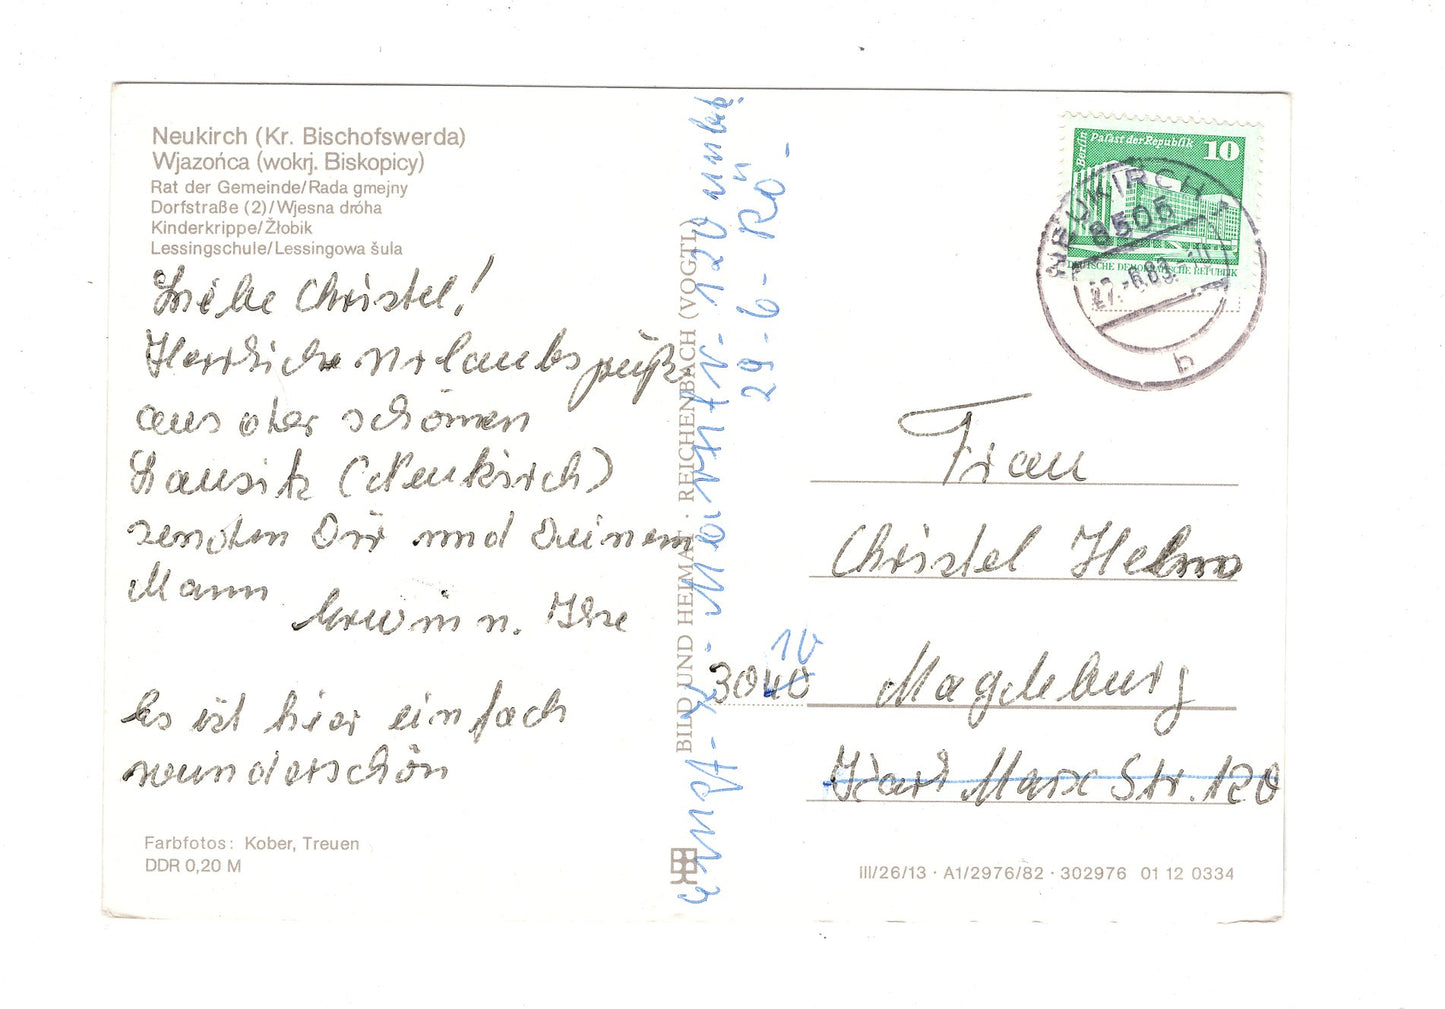 Neukirch (Kr. Bischofswerda)
Wjazońca (wokrj. Biskopicy)
Rat der Gemeinde/Rada gmejny
Dorfstraße (2)/Wjesna dróha
Kinderkrippe/Žłobik
Lessingschule/Lessingowa šula
Liebe Christel!
Herzliche Urlaubsgrüße
aus der schönen
Lausitz (Neukirch)
senden Dir und Deinem
Mann
Erwin u. Ilse
Es ist hier einfach
wunderschön
Farbfotos: Kober, Treuen
DDR 0,20 M
BILD UND HEIMAT · REICHENBACH (VOGTL)
120 unbek
29-6- Rö-
Berlin Palast der Republik
10
DEUTSCHE DEMOKRATISCHE REPUBLIK
NEUKIRCH
8505
27.-6.83.
b
Frau
Christel Helmo
10
3040 Magdeburg
Karl Marx Str. 120
III/26/13 · A1/2976/82 · 302976 01 12 0334